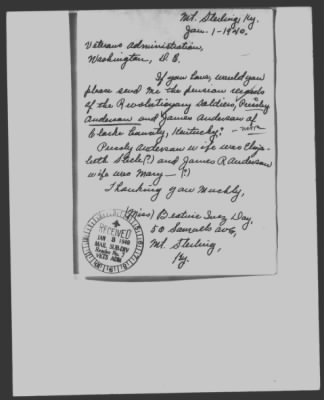 Mt. Sterling, Ky.
Jan. 1-1940.
Veterans Administration,
Washington, D.C.
If you have, would you
please send me the pension records
of the Revolutionary soldiers, Presly
Anderson and James Anderson of
Clarke County, Kentucky?
Presly Anderson wife was Eliza-
beth Steele(?) and James R Anderson
wife was Mary—(?)
Thanking you Muchly,
(Miss) Beatrice Inez Day,
50 Samuels ave,
Mt. Sterling,
Ky.
RECEIVED
JAN 3 1940
MAIL SUB-DIV
VETS ADM